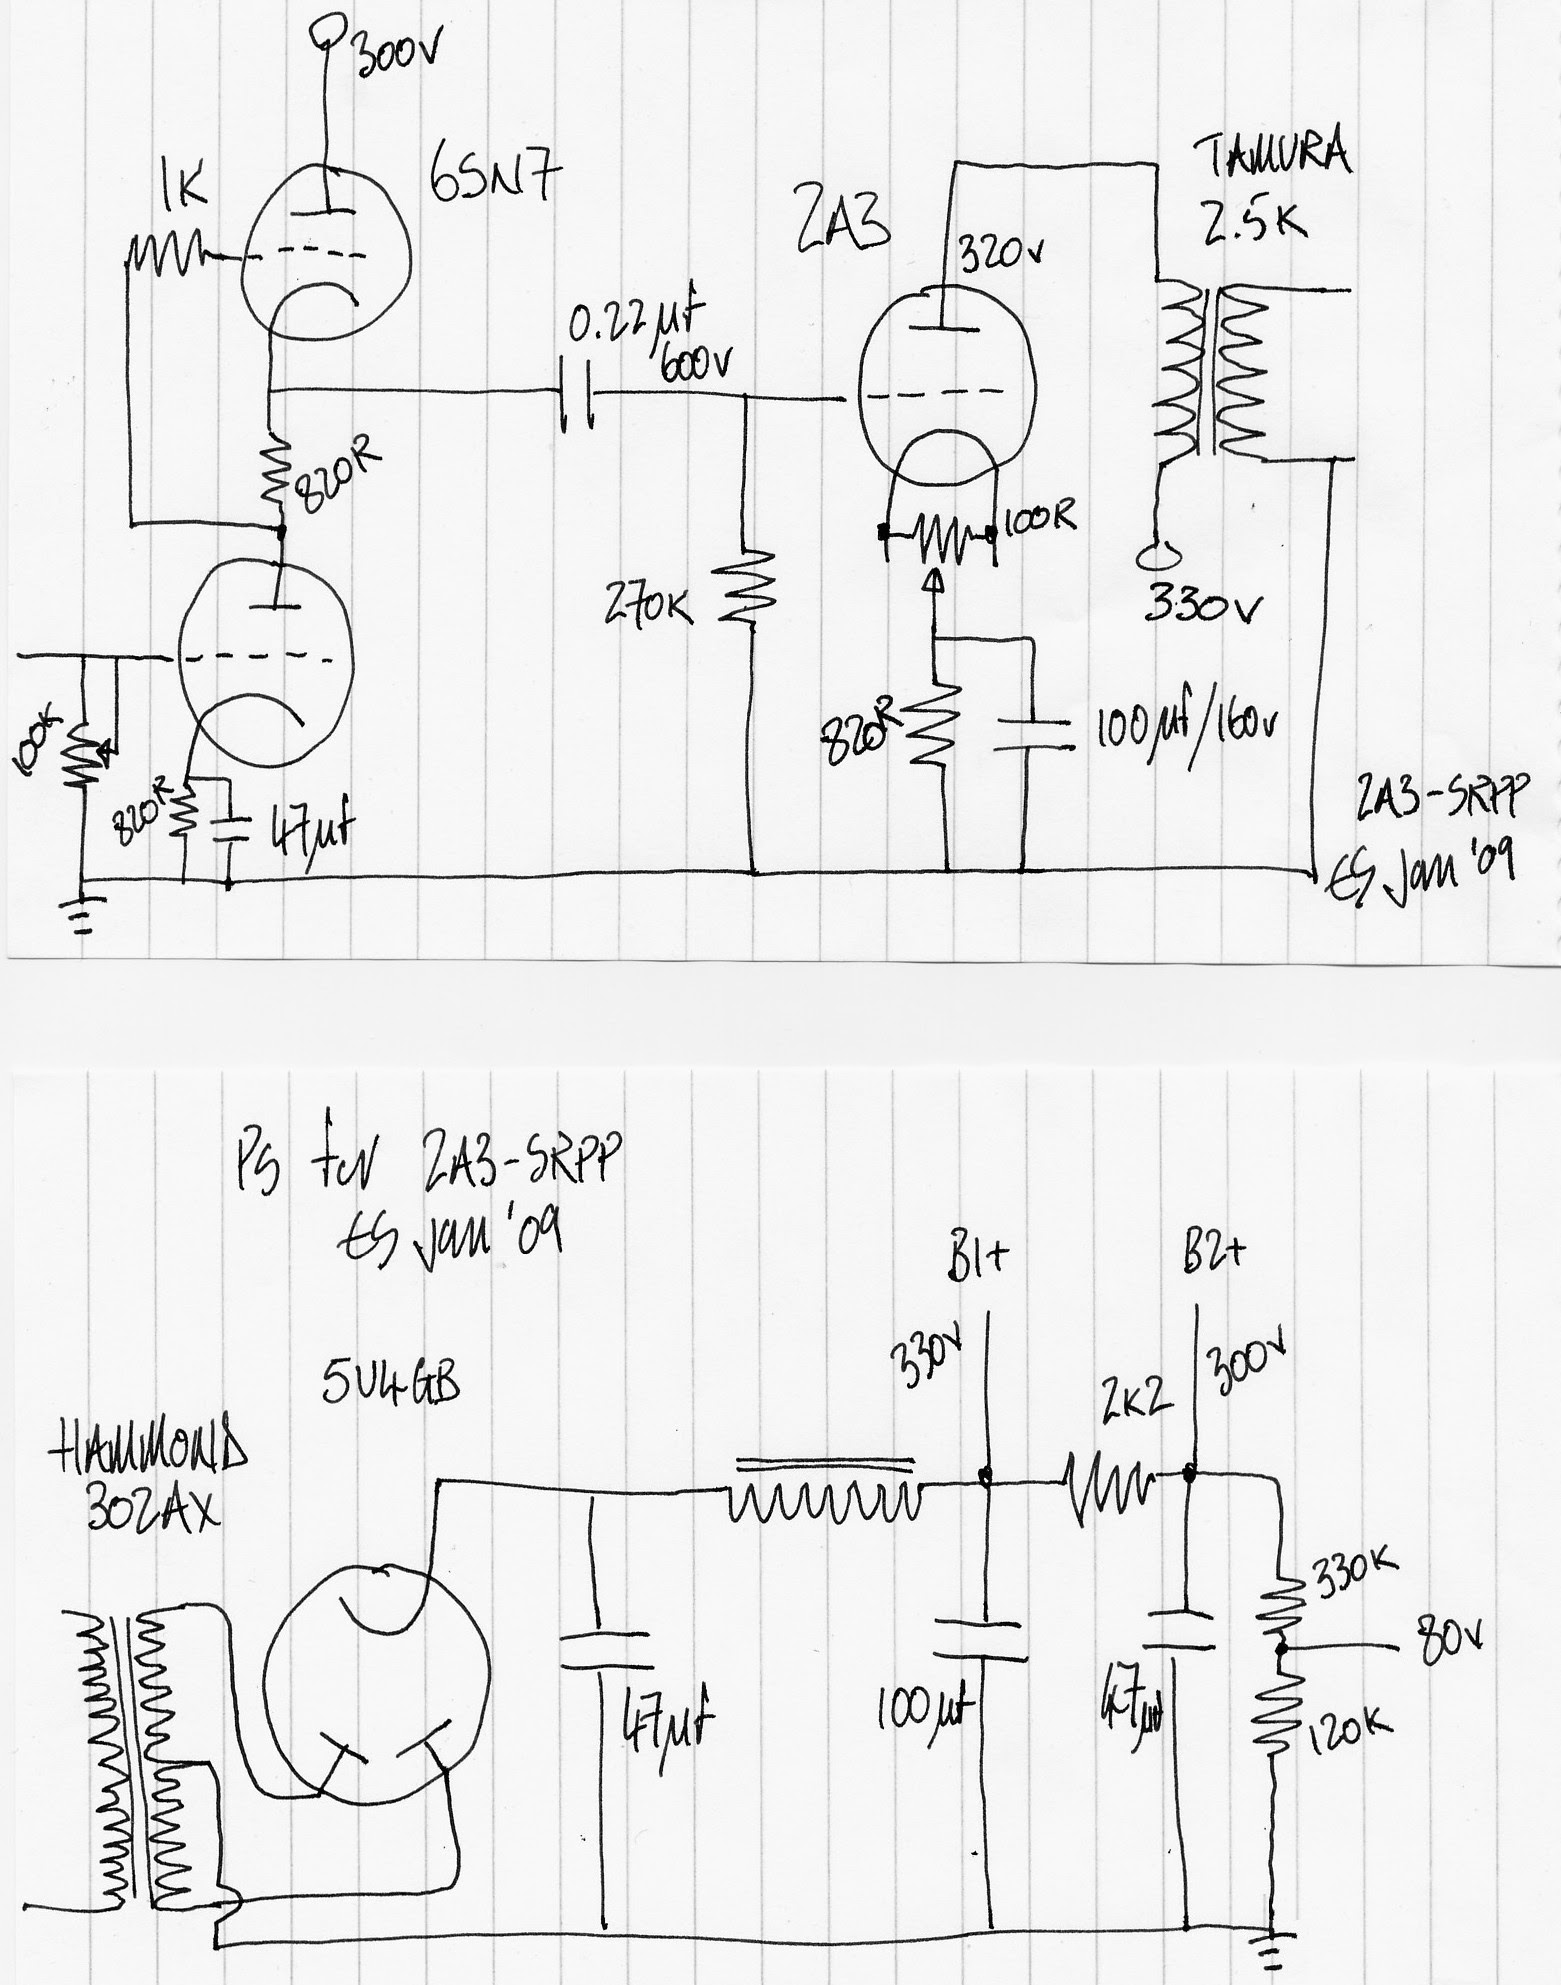 300V
1K
6SN7
820R
100K
820R
47µf
0.22µf
600V
270K
2A3
320V
100R
820R
100µf/160V
TAMURA
2.5K
330V
2A3-SRPP
ES Jan '09
PS for 2A3-SRPP
ES Jan '09
HAMMOND
302AX
5U4GB
47µf
B1+
330V
100µf
2K2
B2+
300V
47µf
330K
80V
120K